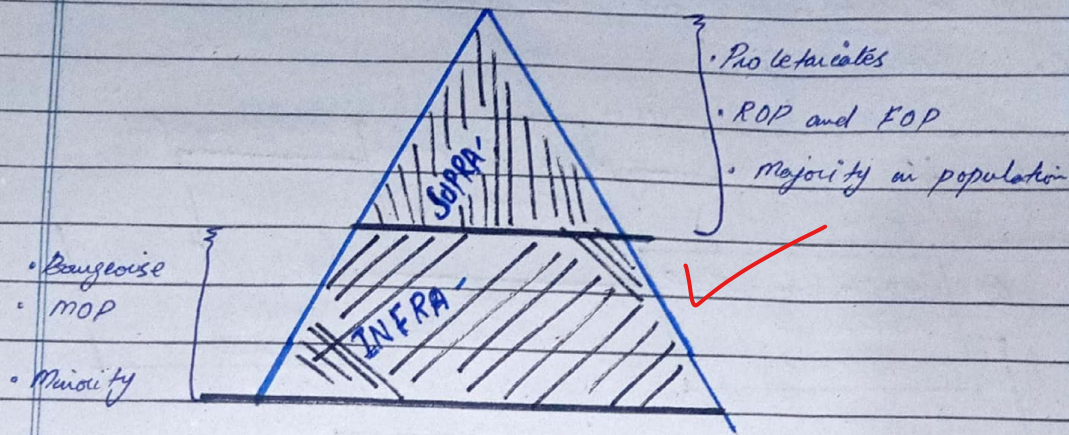 · Proletariates
· ROP and FOP
· Majority in population
SUPRA-
· Bourgeoise
· MOP
· Minority
INFRA-